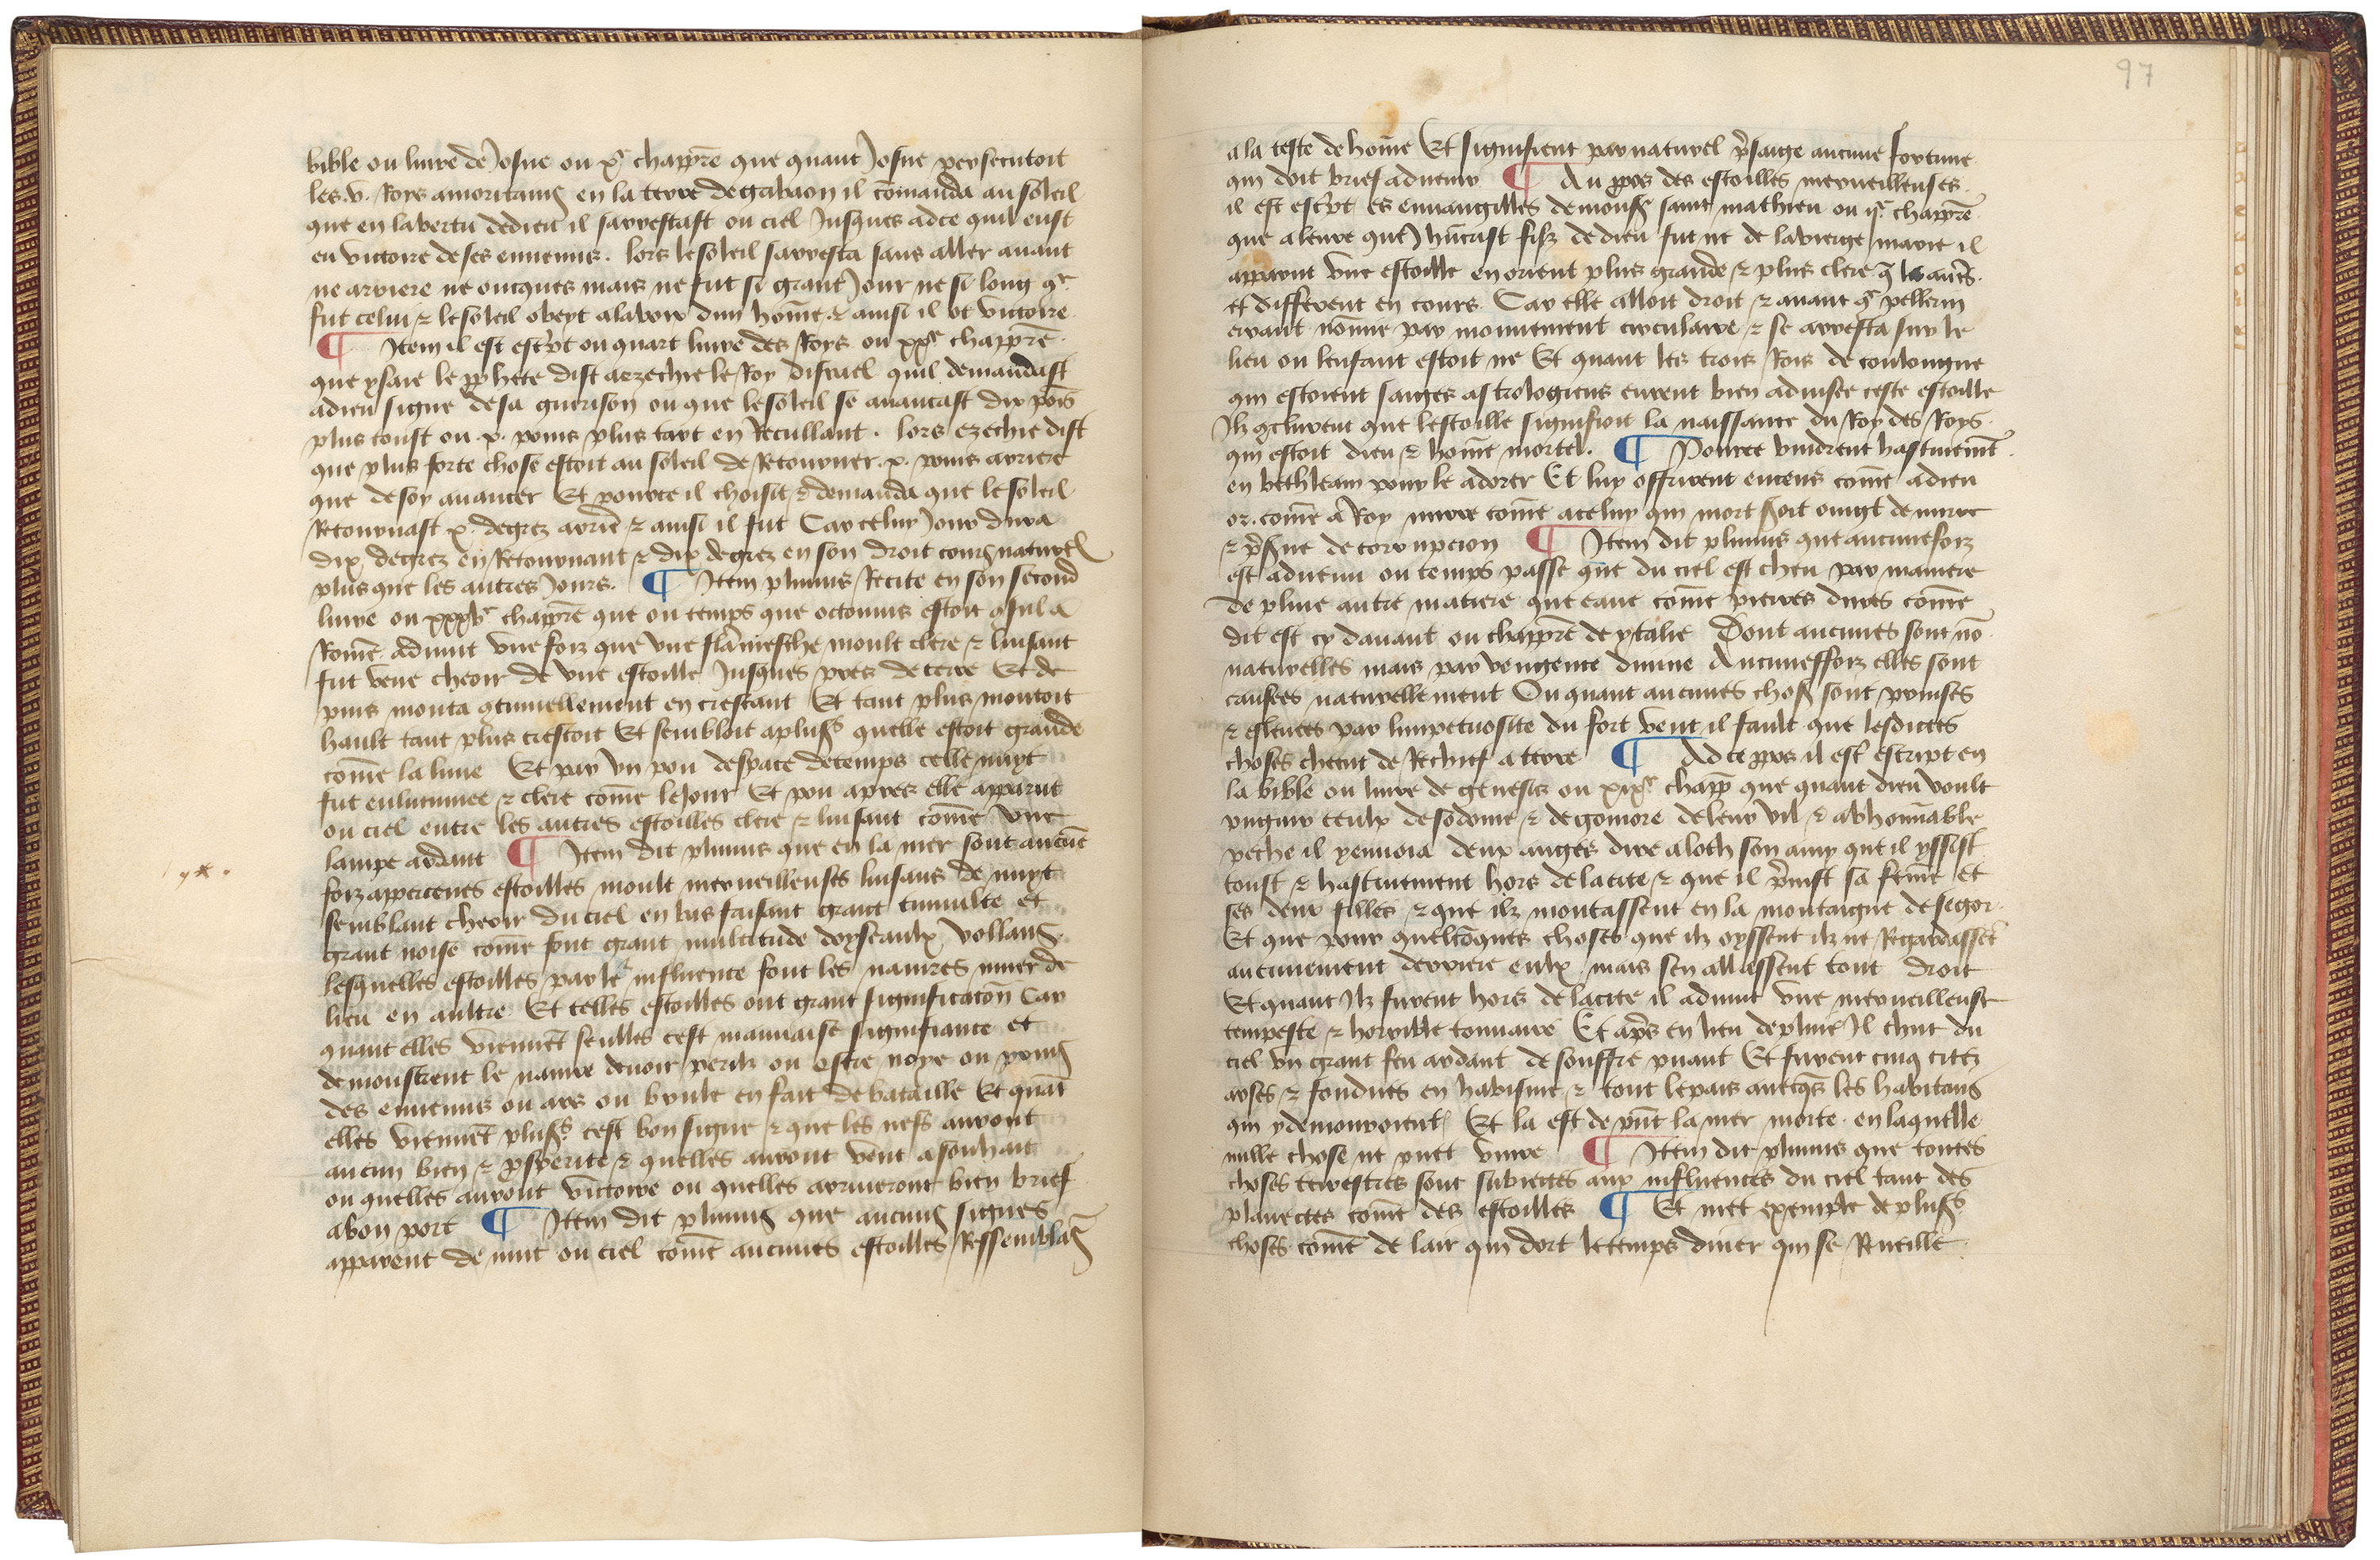 bible ou liure de Josue ou xe chappr̄e que quant Josue persecutoit
les .v. Roys amoritains en la terre de gabaon il cōmanda au soleil
que en la vertu de dieu il sarrestast ou ciel Jusques adce quil eust
eu victoire de ses ennemis. lors le soleil sarresta sans aller auant
ne arriere ne oncques mais ne fut si grant Jour ne si long q̄
fut celui ⁊ le soleil obeyt a la voix dun hōme. ⁊ ainsi il ot victoire
¶ Item il est escr̄pt ou quart liure des Roys ou xxe chappr̄e
que ysaie le pphete dist a ezechie le Roy disrael quil demandast
a dieu signe de sa guerison ou que le soleil se auancast dix pois
plus toust ou .x. poins plus tart en Recullant. lors ezechie dist
que plus forte chose estoit au soleil de Retourner .x. poins arriere
que de soy auancer Et pource il choisit ⁊ demanda que le soleil
Retournast x. degrez arrie᷑ ⁊ ainsi il fut Car celuy Jour dura
dix degrez en Retournant ⁊ dix degrez en son droit cours naturel
plus que les autres Jours. ¶ Item plinius Recite en son second
liure ou xxxve chappr̄e que ou temps que octouius estoit ꝯsul a
Rome. aduint vne foiz que vne flāmesche moult clere ⁊ luisant
fut veue cheoir de vne estoille Jusques pres de terre Et de
puis monta ꝯtinuellement en cressant Et tant plus montoit
hault tant plus cressoit Et sembloit a plus̄ quelle estoit grande
cōme la lune Et par vn pou despace de temps celle nuyt
fut enluminee ⁊ clere cōme le Jour Et pou apres elle apparut
ou ciel entre les autres estoilles clere ⁊ luisant cōme vne
lampe ardant ¶ Item dit plinius que en la mer sont aucūe
foiz apperceues estoilles moult merueilleuses luisans de nuyt
semblant cheoir du ciel en bas faisant grant tumulte et
grant noise cōme font grant multitude doyseaulx vollans
lesquelles estoilles par le᷑ influence font les nauires muer de
lieu en aultre Et telles estoilles ont grant significacōn Car
quant elles viennēt seulles cest mauuaise signifiance et
demonstrent le nauire deuoir perilz ou estre noye ou prins
des ennemis ou ars ou brule en fait de bataille Et quāt
elles viennēt plus̄ cest bon signe ⁊ que les nefs auront
aucun bien ⁊ ꝓsperite ⁊ quelles auront vent a souhait
ou quelles auront victoire ou quelles arriueront bien brief
a bon port ¶ Item dit plinius que aucuns signes
apparent de nuit ou ciel cōme aucunes estoilles Ressemblās
97
a la teste de hōme Et signifient par naturel p̄saige aucune fortune
qui doit brief aduenir ¶ Au ꝓpos des estoilles merueilleuses
il est escr̄pt es euuangilles de monss̄ saint mathieu ou ije chappr̄e
que a leure que Jhūcrist filz de dieu fut ne de la vierge marie il
apparut vne estoille en orient plus grande ⁊ plus clere q̄ les autr̄s
et different en cours. Car elle alloit droit ⁊ auant q̄ pellerin
errant nōmie par mouuement circulaire ⁊ se arresta sur le
lieu ou lenfant estoit ne Et quant les trois Rois de coulongne
qui estoient saiges astrologiens eurent bien aduisee ceste estoille
Ilz ꝯclurent que lestoille signifioit la naissance du Roy des Roys
qui estoit dieu ⁊ hōme mortel. ¶ Pource vindrent hastiuemēt
en bethleam pour le adorer Et luy offrirent encens cōme a dieu
or. cōme a Roy mirre cōme a celuy qui mort soit oingt de mirre
⁊ p̄serue de corrupcion ¶ Item dit plinius que aucuneffoiz
est aduenu ou temps passe que du ciel est cheu par maniere
de pluie autre matiere que eaue cōme pierres dures cōme
dit est cy dauant ou chappr̄e de ytalie Dont aucunes sont nō
naturelles mais par vengence diuine Aucuneffoiz elles sont
causees naturellement Ou quant aucunes choses sont prinses
⁊ esleuees par limpetuosite du fort vent il fault que lesdictes
choses cheent de Rechief a terre ¶ Ad ce ꝓpos il est escript en
la bible ou liure de genesis ou xixe chapp̄ que quant dieu voult
pugnir ceulx de sodome ⁊ de gomore de leur vil ⁊ abhominable
peche il y enuoia deux anges dire a loth son amy que il yssist
toust ⁊ hastiuement hors de la cite ⁊ que il p̄inst sa fēme et
ses deux filles ⁊ que ilz montassent en la montaigne de segor.
Et que pour quelcōques choses que ilz oyssent ilz ne Regardassēt
aucunement derriere eulx mais sen allassent tout droit
Et quant Ilz furent hors de la cite il aduint vne merueilleuse
tempeste ⁊ horrible tonnaire Et ap̄s en lieu de pluie Il chut du
ciel vn grant feu ardant de souffre puant Et furent cinq citez
arses ⁊ fondues en habisme ⁊ tout le pais auecq̄s les habitans
qui y demouroient Et la est de p̄nt la mer morte. en laquelle
nulle chose ne puet viure ¶ Item dit plinius que toutes
choses terrestres sont subiectes aux influences du ciel tant des
planectes cōme des estoilles ¶ Et met exemple de plus̄
choses cōme de lair qui dort le temps diuer qui se Rueille